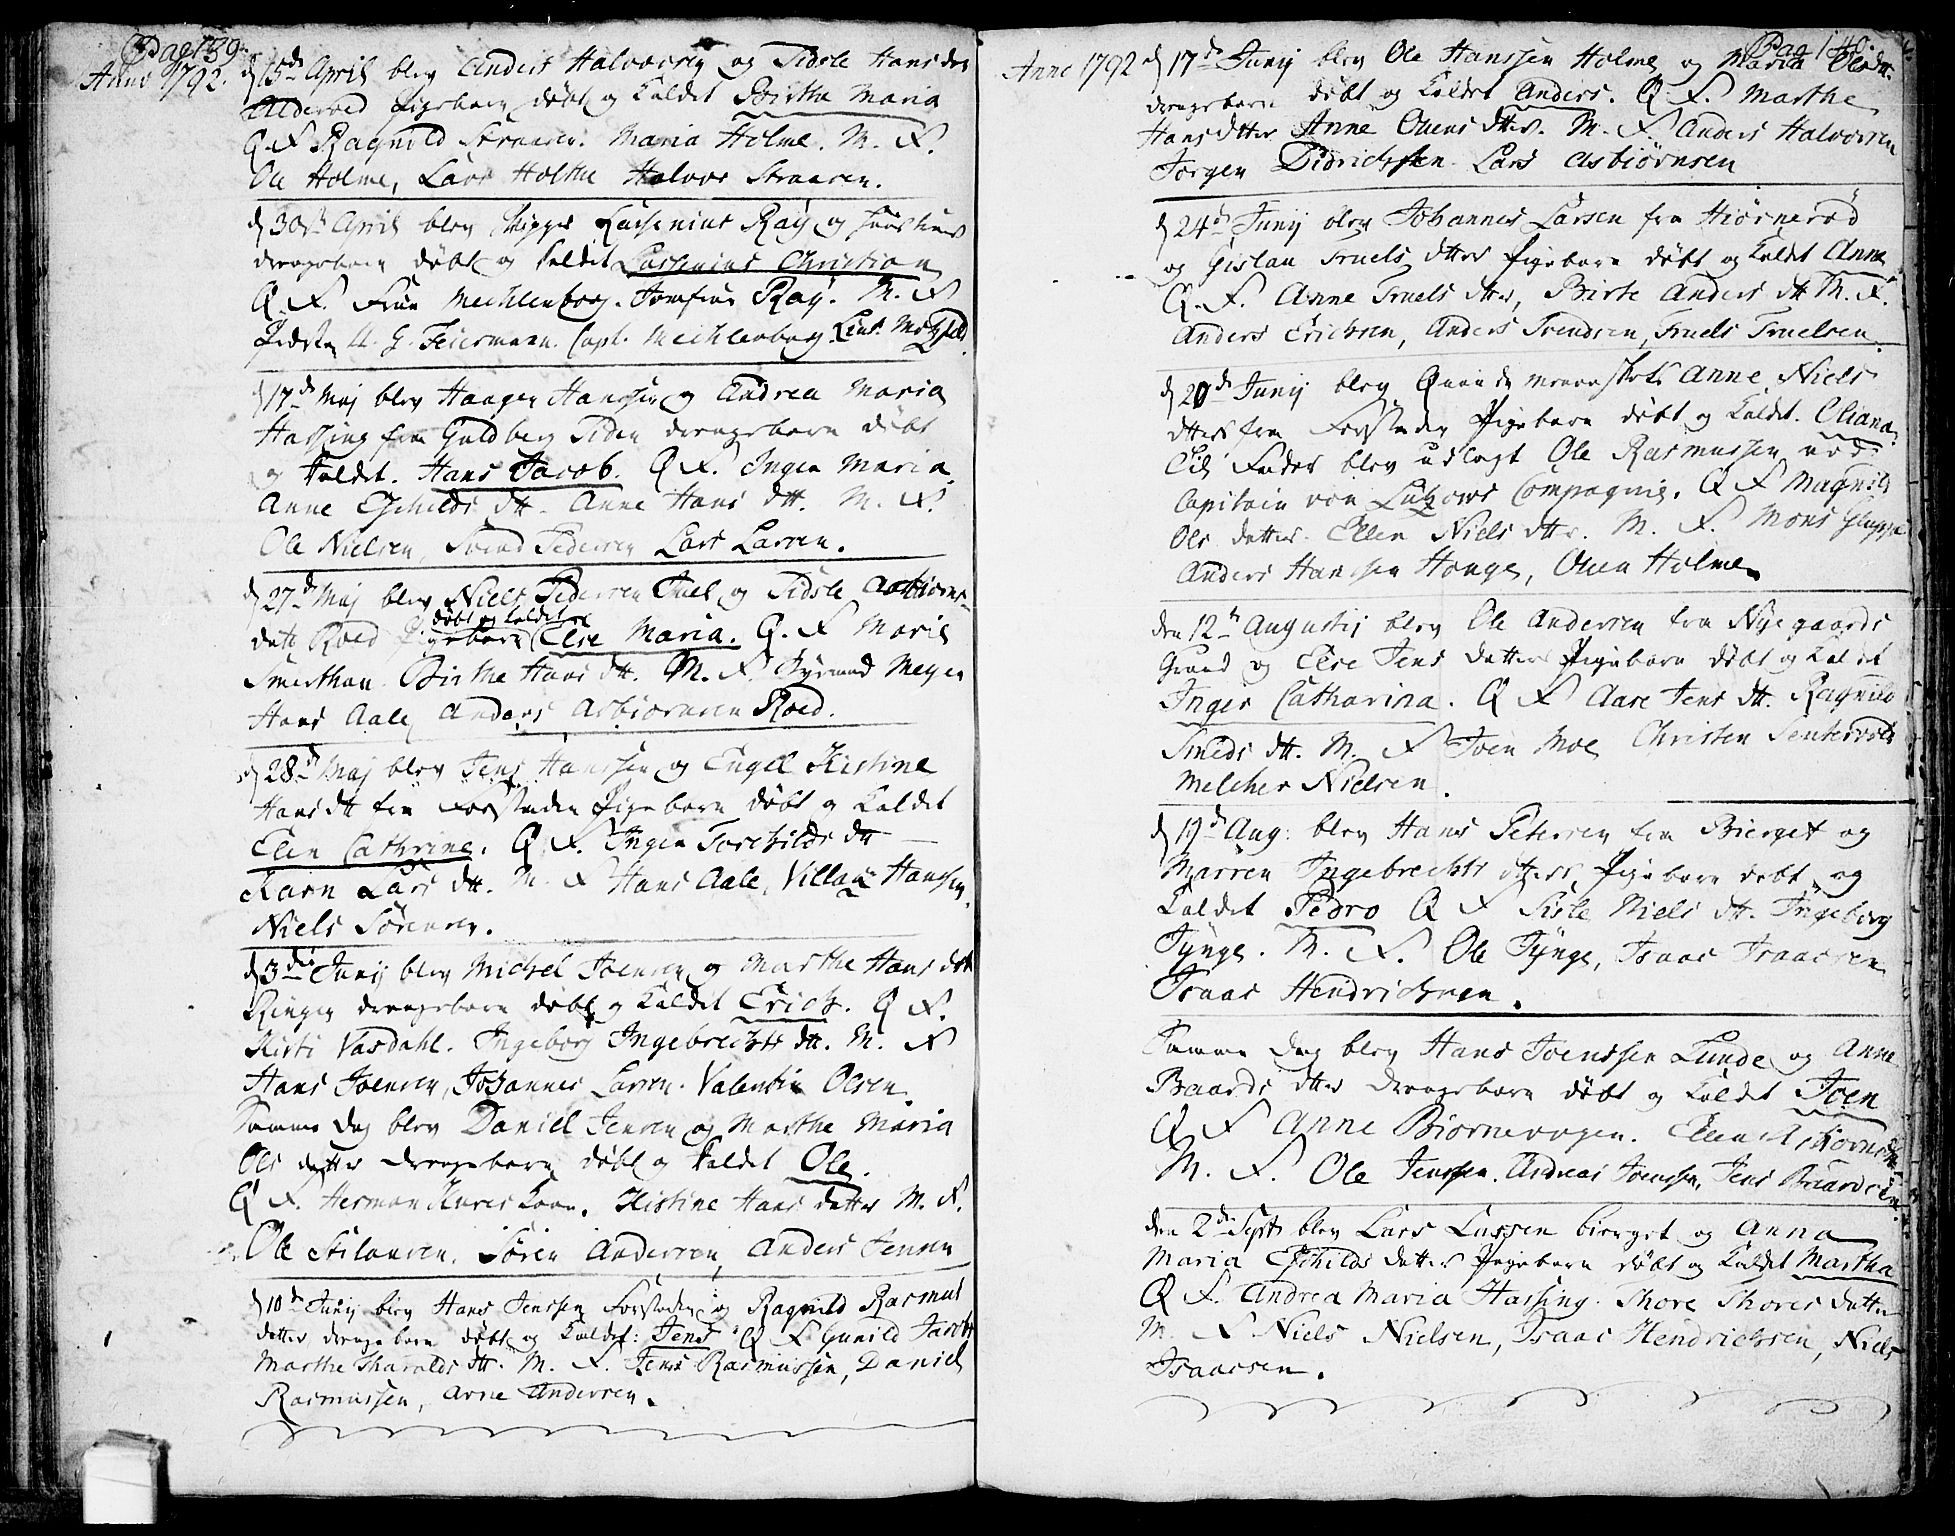 Pag 139.
Anno 1792.
d 15de April blev Anders Halvorsen og Sidsle Hansdtr
Alderoed Pigebarn döbt og kaldet Birthe Maria
Q. F. Ragnild Straaren. Maria Holme. M. F.
Ole Holme, Lars Holthe Halvor Straaren.
d 30te April blev Skipper Lassenius Ray og Hustrues
drengebarn döbt og kaldet Lassenius Christian
Q. F. Frue Mechlenborg. Jomfrue Ray. M. F.
H. G. Feiermann. Capt. Mechlenborg. Lieut.
d 17de Maj blev Haagen Hanssen og Andrea Maria
Hassing fra Guldberg Siden drengebarn döbt
og kaldet. Hans Jacob. Q F. Inger Maria
Anne Eschilds dtt. Anne Hans dtt. M. F.
Ole Nielsen, Svend Pedersen Lars Larsen.
d 27de Maj blev Niels Pedersen Juel og Sidsle Asbiörns
datt Roed Pigebarn döbt og kaldet Else Maria. Q. F. Maria
Smerthau Birthe Hans dtt. M. F. Meyer
Hans Aale Anders Asbiörnsen Roed.
d 28de Maj blev Jens Hanssen og Engel Kistine
Hans dtt fra Forstaden Pigebarn döbt og kaldet
Elen Cathrine. Q F. Inger Torchilds dtt
Karn Lars dtt. M. F Hans Aale, Villau Hanssen,
Niels Sörensen.
d 3die Junij blev Michel Joensen og Marthe Hans dtt
Ringen drengebarn döbt og kaldet Erich. Q F.
Kisti Vardahl. Ingeborg Ingebrechts dtt. M. F
Hans Joensen, Johannes Larsen. Valentin Olsen.
Samme Dag blev Daniel Jensen og Marthe Maria
Ols datter drengebarn döbt og kaldet Ole.
Q F. Herman Kone. Kistine Hans datter M. F.
Ole Stilausen. Sören Andersen, Anders Jensen
d 10de Junij blev Hans Jenssen Forstaden og Ragnild Rasmus
datter drengebarn döbt og kaldet: Jens Q F Gunild Jacobs
Marthe Tharalds dtt. M. F. Jens Rasmussen, Daniel
Rasmussen, Arne Andersen.
Pag 140.
Anno 1792 d 17de Junij blev Ole Hanssen Holme og Maria Olsdtr.
drengebarn döbt og kaldet Anders. Q F. Marthe
Hans dtter Anne Ouens dtter. M. F. Anders Halvorsen
Jörgen Didrichsen Lars Asbiörnsen
d 24de Junij blev Johannes Larsen fra Hiörneröd
og Gislau Truels dtter Pigebarn döbt og kaldet Anne
Q. F. Anne Truels dtter, Birte Anders dtt M. F.
Anders Erichsen, Anders Svendsen, Truels Truelsen.
d 20de Junij blev Anne Niels
dtter fra Forstaden Pigebarn döbt og kaldet. Oliana.
Til Fader blev udlagt Ole Rasmussen ved
Capitain von Lützows Compagnie. Q F Magnild
Ols datter. Ellen Niels dtter. M. F. Mons
Anders Hanssen Hauge, Ouen Holme.
den 12te Augustij blev Ole Andersen fra Nyegaards
Grund og Else Jens datter Pigebarn döbt og kaldet
Inger Catharina. Q F Aase Jens dtt. Ragnild
Smeds dtt. M. F Joen Moe Christen
Melcher Nielsen.
d 19de Aug: blev Hans Petersen fra Bierget og
Marren Ingebrechts dtters Pigebarn döbt og
kaldet Pedro Q F Sisle Niels dtt. Ingeborg
Tynge. M. F. Ole Tynge, Isaac Isaacsen
Isaac Hendrichsen.
Samme Dag blev Hans Joenssen Lunde og Anne
Baards dtter drengebarn döbt og kaldet Joen
Q F Anne Biornevogen. Elen Asbiörns dtt
M. F. Ole Jenssen. Andreas Joenssen, Jens Baardsen.
den 2den Sept blev Lars Lassen bierget og Anna
Maria Eschilds datter Pigebarn döbt og kaldet Martha
Q F. Andrea Maria Hassing. Thore Thores datter
M. F Niels Nielsen, Isaac Hendrichsen, Niels
Isaacsen.